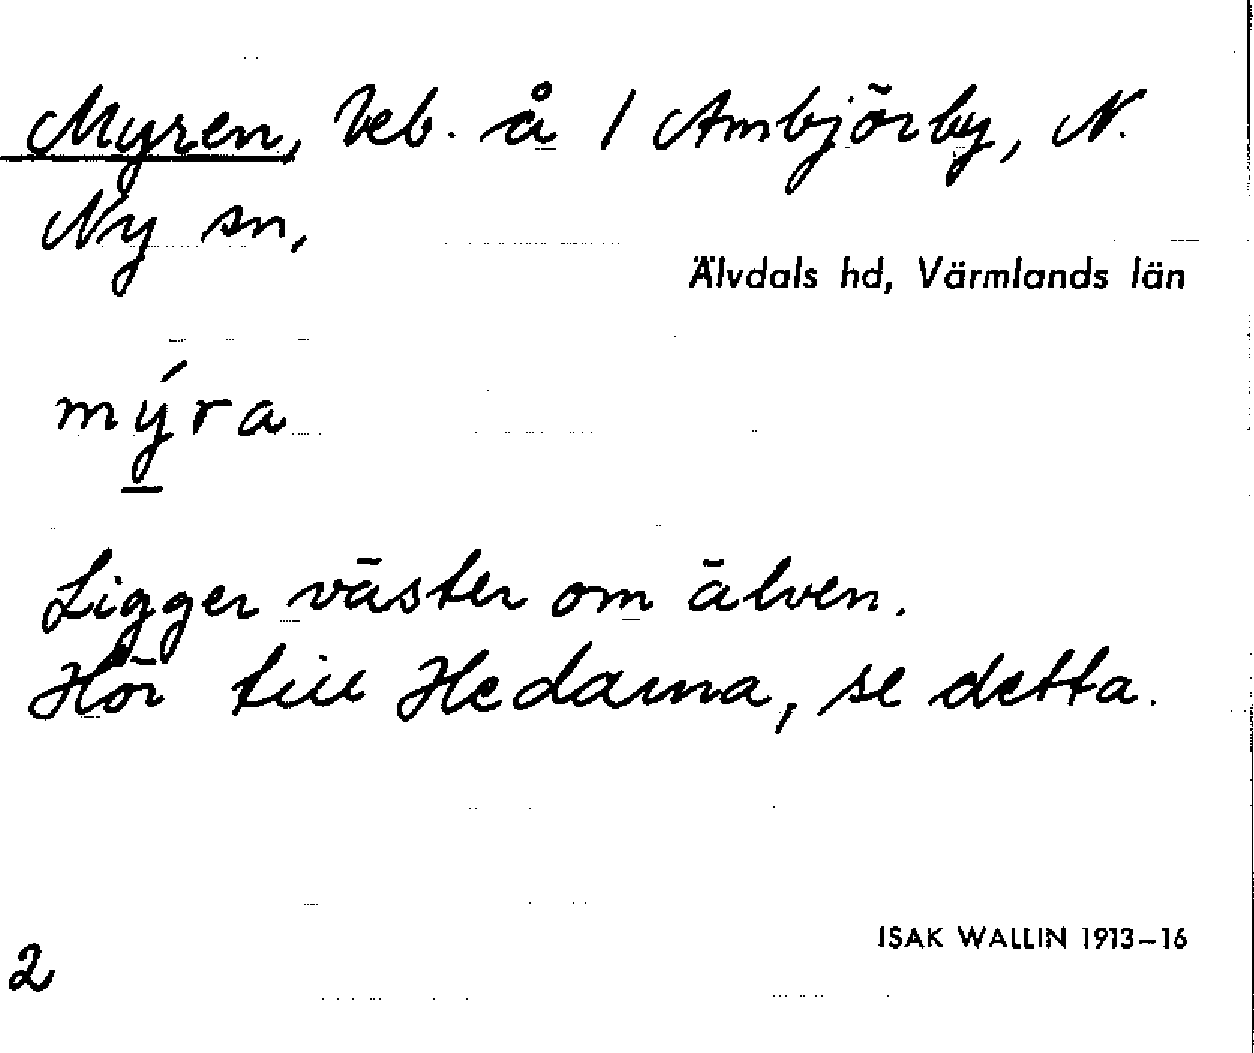 Myren, beb. å 1 Ambjörby, N.
Ny sn,
Älvdals hd, Värmlands län
mýra
Ligger väster om älven.
Hör till Hedarna, se detta.
ISAK WALLIN 1913–16
2